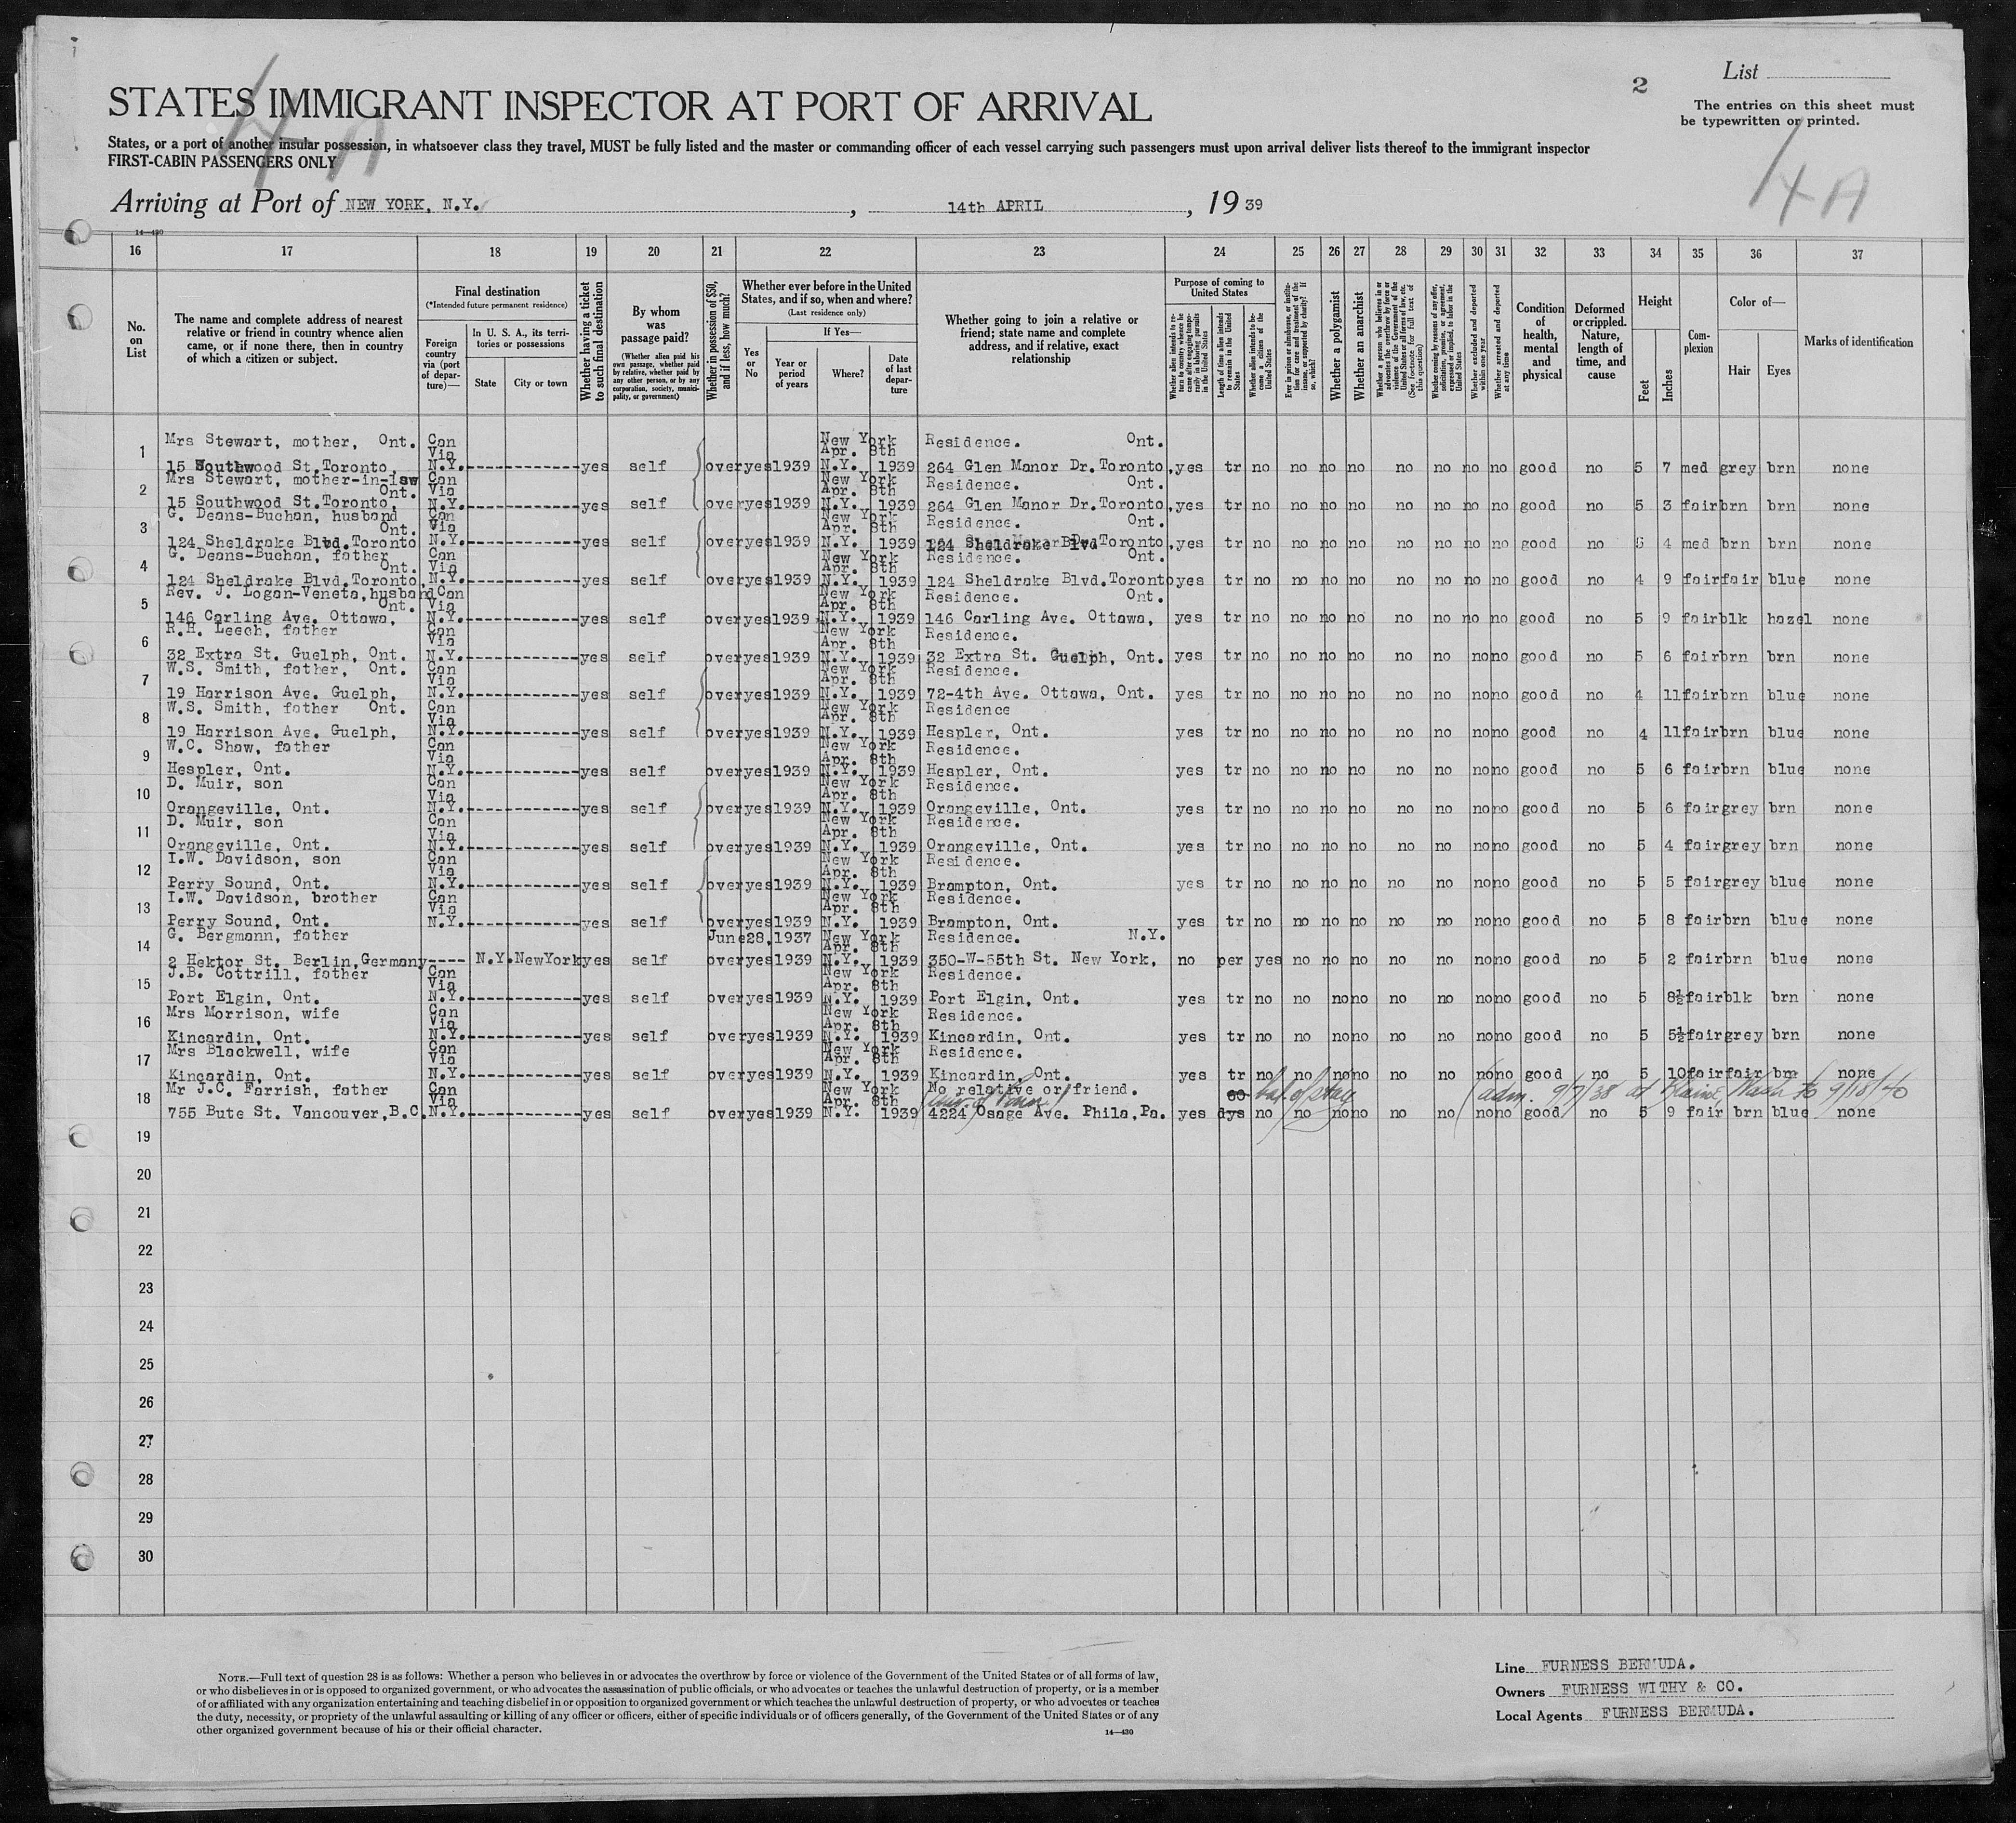 2
List
STATES IMMIGRANT INSPECTOR AT PORT OF ARRIVAL
The entries on this sheet must
be typewritten or printed.
4A
4A
States, or a port of another insular possession, in whatsoever class they travel, MUST be fully listed and the master or commanding officer of each vessel carrying such passengers must upon arrival deliver lists thereof to the immigrant inspector
FIRST-CABIN PASSENGERS ONLY
Arriving at Port of NEW YORK, N.Y. , 14th APRIL , 19 39
14—430
16 17 18 19 20 21 22 23 24 25 26 27 28 29 30 31 32 33 34 35 36 37
No. on List
The name and complete address of nearest relative or friend in country whence alien came, or if none there, then in country of which a citizen or subject.
Final destination
(*Intended future permanent residence)
Foreign country via (port of departure)—
In U. S. A., its territories or possessions
State
City or town
Whether having a ticket to such final destination
By whom was passage paid?
(Whether alien paid his own passage, whether paid by relative, whether paid by any other person, or by any corporation, society, municipality, or government)
Whether in possession of $50, and if less, how much?
Whether ever before in the United States, and if so, when and where?
(Last residence only)
Yes or No
If Yes—
Year or period of years
Where?
Date of last departure
Whether going to join a relative or friend; state name and complete address, and if relative, exact relationship
Purpose of coming to United States
Whether alien intends to return to country whence he came after engaging temporarily in laboring pursuits in the United States
Length of time alien intends to remain in the United States
Whether alien intends to become a citizen of the United States
Ever in prison or almshouse, or institution for care and treatment of the insane, or supported by charity? If so, which?
Whether a polygamist
Whether an anarchist
Whether a person who believes in or advocates the overthrow by force or violence of the Government of the United States or all forms of law, etc. (See footnote for full text of this question)
Whether coming by reasons of any offer, solicitation, promise, or agreement, expressed or implied, to labor in the United States
Whether excluded and deported within one year
Whether arrested and deported at any time
Condition of health, mental and physical
Deformed or crippled. Nature, length of time, and cause
Height
Feet
Inches
Complexion
Color of—
Hair
Eyes
Marks of identification
Mrs Stewart, mother, Ont. Can Via New York Apr. 8th Residence. Ont.
1 15 Southwood St.Toronto, N.Y. yes self over yes 1939 N.Y. 1939 264 Glen Manor Dr.Toronto, yes tr no no no no no no no no good no 5 7 med grey brn none
Mrs Stewart, mother-in-law Ont. Can Via New York Apr. 8th Residence. Ont.
2 15 Southwood St.Toronto, N.Y. yes self over yes 1939 N.Y. 1939 264 Glen Manor Dr.Toronto, yes tr no no no no no no no no good no 5 3 fair brn brn none
G. Deans-Buchan, husband Ont. Can Via New York Apr. 8th Residence. Ont.
3 124 Sheldrake Blvd.Toronto N.Y. yes self over yes 1939 N.Y. 1939 124 Sheldrake Blvd Toronto, yes tr no no no no no no no no good no 5 4 med brn brn none
G. Deans-Buchan, father Ont. Can Via New York Apr. 8th Residence. Ont.
4 124 Sheldrake Blvd.Toronto, N.Y. yes self over yes 1939 N.Y. 1939 124 Sheldrake Blvd.Toronto yes tr no no no no no no no no good no 4 9 fair fair blue none
Rev. J. Logan-Veneta, husband Ont. Can Via New York Apr. 8th Residence. Ont.
5 146 Carling Ave. Ottawa, N.Y. yes self over yes 1939 N.Y. 1939 146 Carling Ave. Ottawa, yes tr no no no no no no no no good no 5 9 fair blk hazel none
R.H. Leech, father Can Via New York Apr. 8th Residence.
6 32 Extra St. Guelph, Ont. N.Y. yes self over yes 1939 N.Y. 1939 32 Extra St. Guelph, Ont. yes tr no no no no no no no no good no 5 6 fair brn brn none
W.S. Smith, father, Ont. Can Via New York Apr. 8th Residence.
7 19 Harrison Ave. Guelph, N.Y. yes self over yes 1939 N.Y. 1939 72-4th Ave. Ottawa, Ont. yes tr no no no no no no no no good no 4 11 fair brn blue none
W.S. Smith, father Ont. Can Via New York Apr. 8th Residence
8 19 Harrison Ave. Guelph, N.Y. yes self over yes 1939 N.Y. 1939 Hespler, Ont. yes tr no no no no no no no no good no 4 11 fair brn blue none
W.C. Shaw, father Can Via New York Apr. 8th Residence.
9 Hespler, Ont. N.Y. yes self over yes 1939 N.Y. 1939 Hespler, Ont. yes tr no no no no no no no no good no 5 6 fair brn blue none
D. Muir, son Can Via New York Apr. 8th Residence.
10 Orangeville, Ont. N.Y. yes self over yes 1939 N.Y. 1939 Orangeville, Ont. yes tr no no no no no no no no good no 5 6 fair grey brn none
D. Muir, son Can Via New York Apr. 8th Residence.
11 Orangeville, Ont. N.Y. yes self over yes 1939 N.Y. 1939 Orangeville, Ont. yes tr no no no no no no no no good no 5 4 fair grey brn none
I.W. Davidson, son Can Via New York Apr. 8th Residence.
12 Perry Sound, Ont. N.Y. yes self over yes 1939 N.Y. 1939 Brampton, Ont. yes tr no no no no no no no no good no 5 5 fair grey blue none
I.W. Davidson, brother Can Via New York Apr. 8th Residence.
13 Perry Sound, Ont. N.Y. yes self over yes 1939 N.Y. 1939 Brampton, Ont. yes tr no no no no no no no no good no 5 8 fair brn blue none
G. Bergmann, father June28,1937 New York Apr. 8th Residence. N.Y.
14 2 Hektor St. Berlin,Germany---- N.Y. NewYork yes self over yes 1939 N.Y. 1939 350-W-55th St. New York, no per yes no no no no no no no good no 5 2 fair brn blue none
J.B. Cottrill, father Can Via New York Apr. 8th Residence.
15 Port Elgin, Ont. N.Y. yes self over yes 1939 N.Y. 1939 Port Elgin, Ont. yes tr no no no no no no no no good no 5 8½ fair blk brn none
Mrs Morrison, wife Can Via New York Apr. 8th Residence.
16 Kincardin, Ont. N.Y. yes self over yes 1939 N.Y. 1939 Kincardin, Ont. yes tr no no no no no no no no good no 5 5½ fair grey brn none
Mrs Blackwell, wife Can Via New York Apr. 8th Residence.
17 Kincardin, Ont. N.Y. yes self over yes 1939 N.Y. 1939 Kincardin, Ont. yes tr no no no no no no no no good no 5 10 fair fair brn none
Mr J.C. Farrish, father Can Via New York Apr. 8th No relative or friend. 60 bal of stay (adm. 9/9/38 at Blaine, Wash to 9/18/40
18 755 Bute St. Vancouver,B.C. N.Y. yes self over yes 1939 N.Y. 1939 4224 Osage Ave. Phila,Pa. yes dys no no no no no no no no good no 5 9 fair brn blue none
19
20
21
22
23
24
25
26
27
28
29
30
NOTE.—Full text of question 28 is as follows: Whether a person who believes in or advocates the overthrow by force or violence of the Government of the United States or of all forms of law,
or who disbelieves in or is opposed to organized government, or who advocates the assassination of public officials, or who advocates or teaches the unlawful destruction of property, or is a member
of or affiliated with any organization entertaining and teaching disbelief in or opposition to organized government or which teaches the unlawful destruction of property, or who advocates or teaches
the duty, necessity, or propriety of the unlawful assaulting or killing of any officer or officers, either of specific individuals or of officers generally, of the Government of the United States or of any
other organized government because of his or their official character.
14—430
Line FURNESS BERMUDA.
Owners FURNESS WITHY & CO.
Local Agents FURNESS BERMUDA.